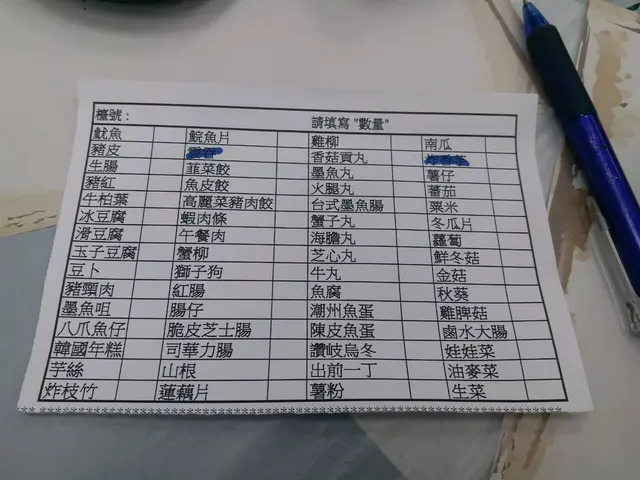 檯號： 請填寫 "數量"
魷魚 鯇魚片 雞柳 南瓜
豬皮 香菇貢丸
生腸 韮菜餃 墨魚丸 薯仔
豬紅 魚皮餃 火腿丸 蕃茄
牛柏葉 高麗菜豬肉餃 台式墨魚腸 粟米
冰豆腐 蝦肉條 蟹子丸 冬瓜片
滑豆腐 午餐肉 海膽丸 蘿蔔
玉子豆腐 蟹柳 芝心丸 鮮冬菇
豆卜 獅子狗 牛丸 金菇
豬頸肉 紅腸 魚腐 秋葵
墨魚咀 腸仔 潮州魚蛋 雞脾菇
八爪魚仔 脆皮芝士腸 陳皮魚蛋 鹵水大腸
韓國年糕 司華力腸 讚岐烏冬 娃娃菜
芋絲 山根 出前一丁 油麥菜
炸枝竹 蓮藕片 薯粉 生菜